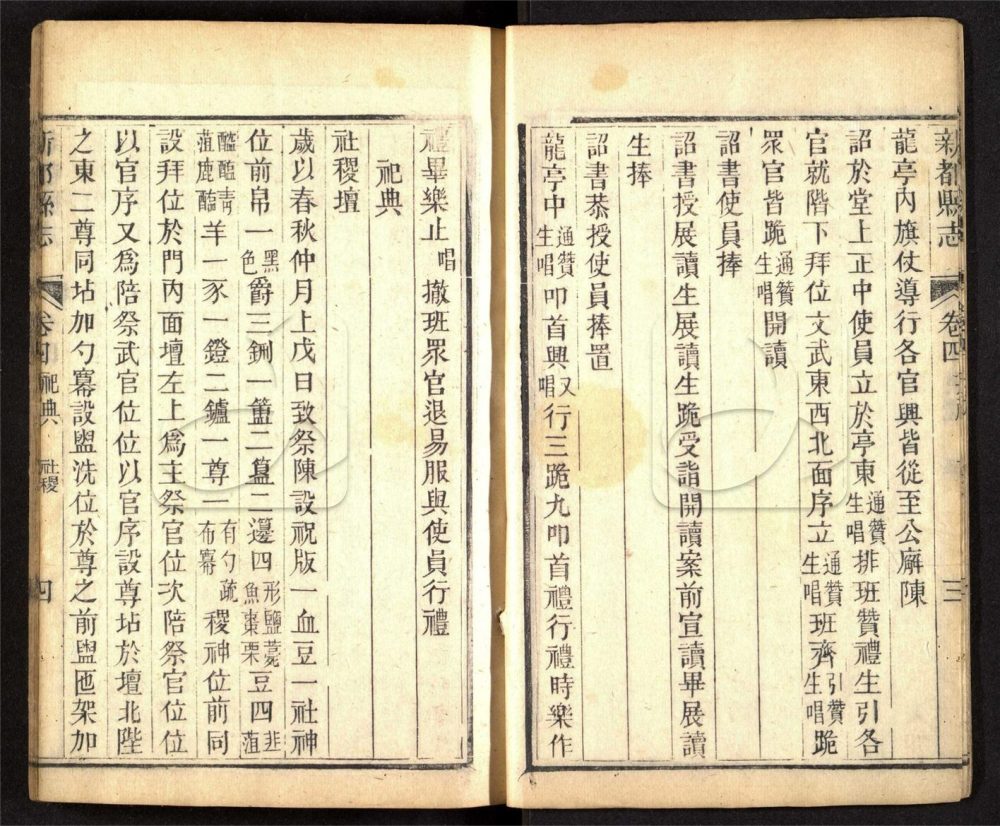 新都縣志 卷四 三
龍亭內旗仗導行各官興皆從至公廨陳
詔於堂上正中使員立於亭東通贊生唱排班贊禮生引各
官就階下拜位文武東西北面序立通贊生唱班齊引贊生唱跪
眾官皆跪通贊生唱開讀
詔書使員捧
詔書授展讀生展讀生跪受詣開讀案前宣讀畢展讀
生捧
詔書恭授使員捧置
龍亭中通贊生唱叩首興又唱行三跪九叩首禮行禮時樂作
禮畢樂止唱撤班眾官退易服與使員行禮
祀典
社稷壇
歲以春秋仲月上戊日致祭陳設祝版一血豆一社神
位前帛一黑色爵三鉶一簠二簋二籩四形鹽薧魚棗栗豆四韭菹
醓醢菁菹鹿醢羊一豕一鐙二鑪一尊一有勺疏布冪稷神位前同
設拜位於門內面壇左上為主祭官位次陪祭官位位
以官序又為陪祭武官位位以官序設尊坫於壇北陛
之東二尊同坫加勺冪設盥洗位於尊之前盥匜架加
新都縣志 卷四 祀典 社稷 四